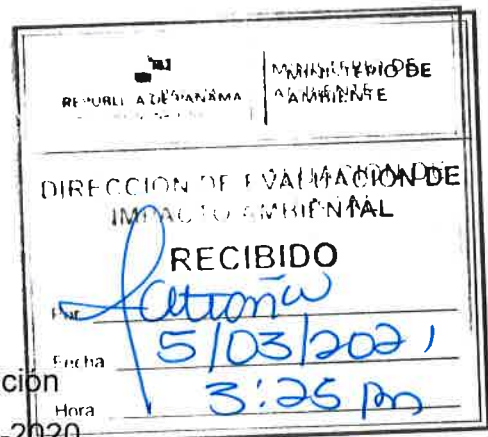 REPUBLICA DE PANAMA
MINISTERIO DE
AMBIENTE
DIRECCION DE EVALUACION DE
IMPACTO AMBIENTAL
RECIBIDO
Por
Fecha 5/03/2021
ción
Hora 3:25 pm
-2020